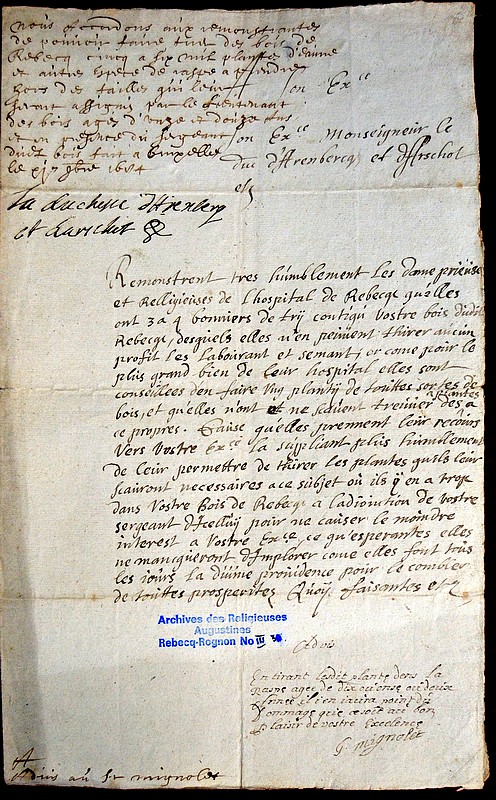 nous accordons aux remonstrantes
de pouvoir faire tirer des bois de
Rebecq cinq a six mil plantes d'eaune
et autres espece de raspe a prendre
hors des tailles qui leur
seront assignez par le lieutenant
des bois ages d'onze et douze ans
et en presence du sergeant
dudit bois fait a bruxelles
le 1684
la duchesse d'Arenberg
et d'arschot
Son Ex.ce
Son Ex.ce Monseigneur le
duc d'Arenbercq et d'Arschot
etz
Remonstrent tres humblement les dame prieuse
et Relligieuses de l'hospital de Rebecq qu'elles
ont 3 a 4 bonniers de trij contigu vostre bois dudit
Rebecq, desquels elles n'en peuvent thirer aucun
profit les labourant et semant, or come pour le
plus grand bien de leur hospital elles sont
conseillées d'en faire vng plantij de touttes sortes de
bois, et qu'elles n'ont et ne scauent treuuer des plantes a
ce propres. Cause qu'elles prennent leur recours
Vers Vostre Ex.ce La suppliant plus humblement
de leur permettre de thirer les plantes qu'ils leur
scauront necessaires a ce subject où ils ÿ en a trop
dans Vostre Bois de Rebecq a l'adjonction de vostre
sergeant d'Icelluÿ pour ne causer le moindre
interest a Vostre Ex.ce, ce qu'esperantes elles
ne mancqueront d'Implorer come elles font tous
les jours La diuine prouidence pour le combler
de touttes prosperitez Quoÿ faisantes etz
Archives des Religieuses
Augustines
Rebecq-Rognon No III
Advis
En tirant lesdit plante dens la
raspe agee de dix ou onse ou deux
d'année il i en iaura point du
dommage que ce soit au bon
plaisir de vostre Excelence
G. mignolet
Aduis au Sr mignolet